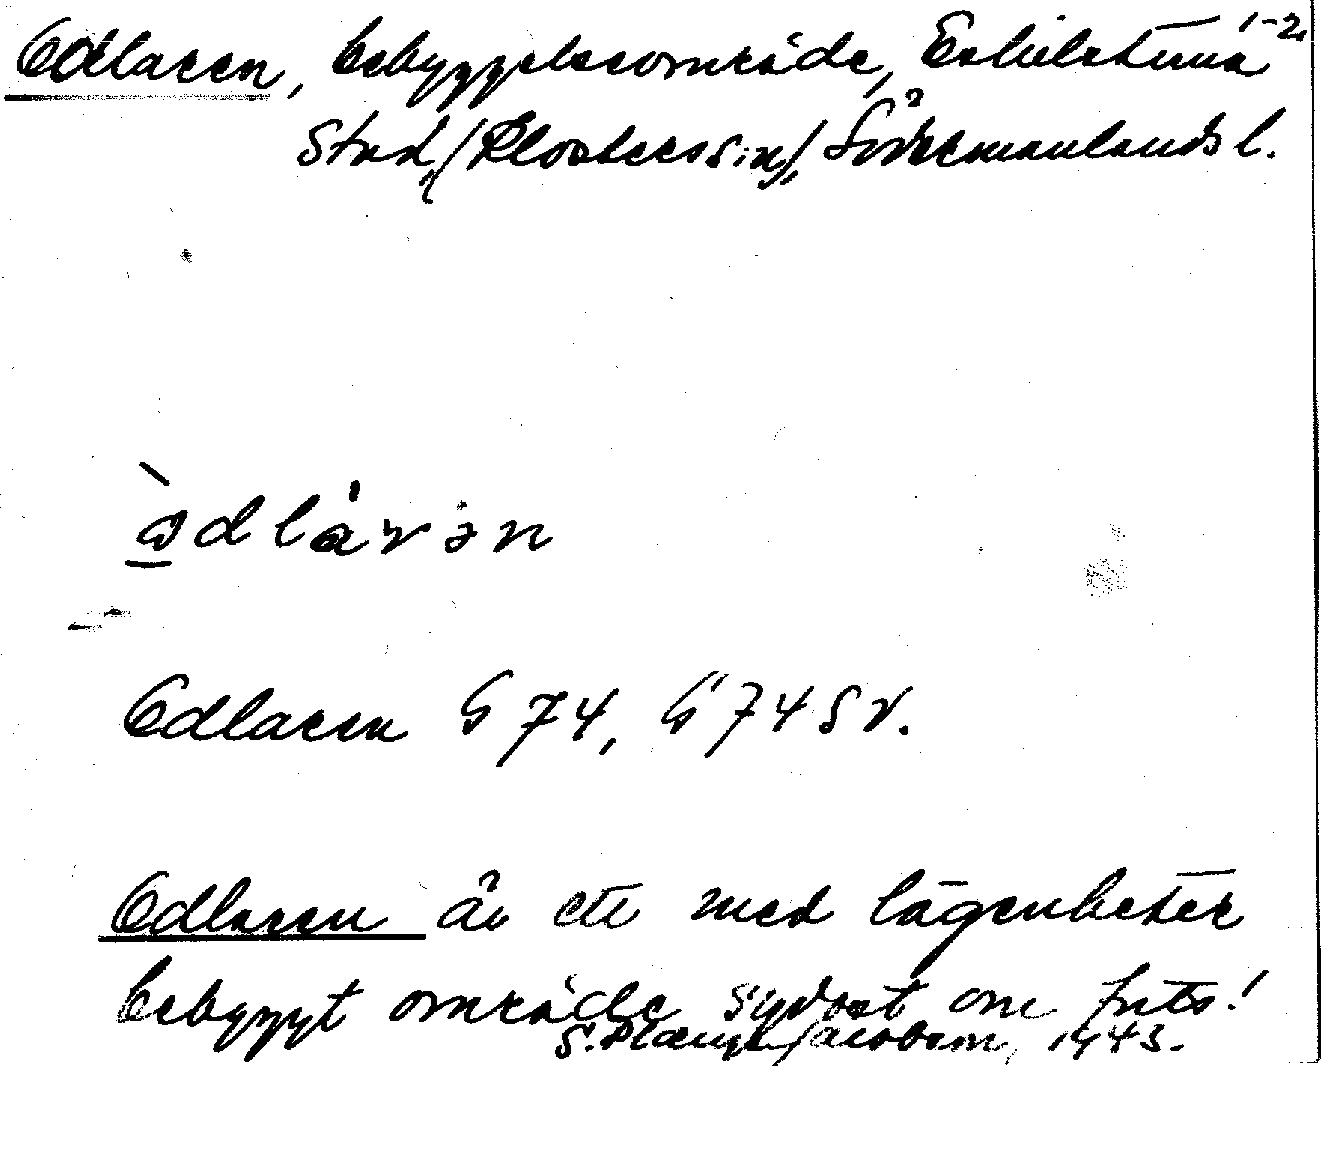 Odlaren, bebyggelseområde, Eskilstuna 1-2.
stad, (Klosters sn), Södermanlands l.
Odlaren G 74, G 74 SV.
Odlaren är ett med lägenheter
bebyggt område sydost om
Jacobson, 1943.